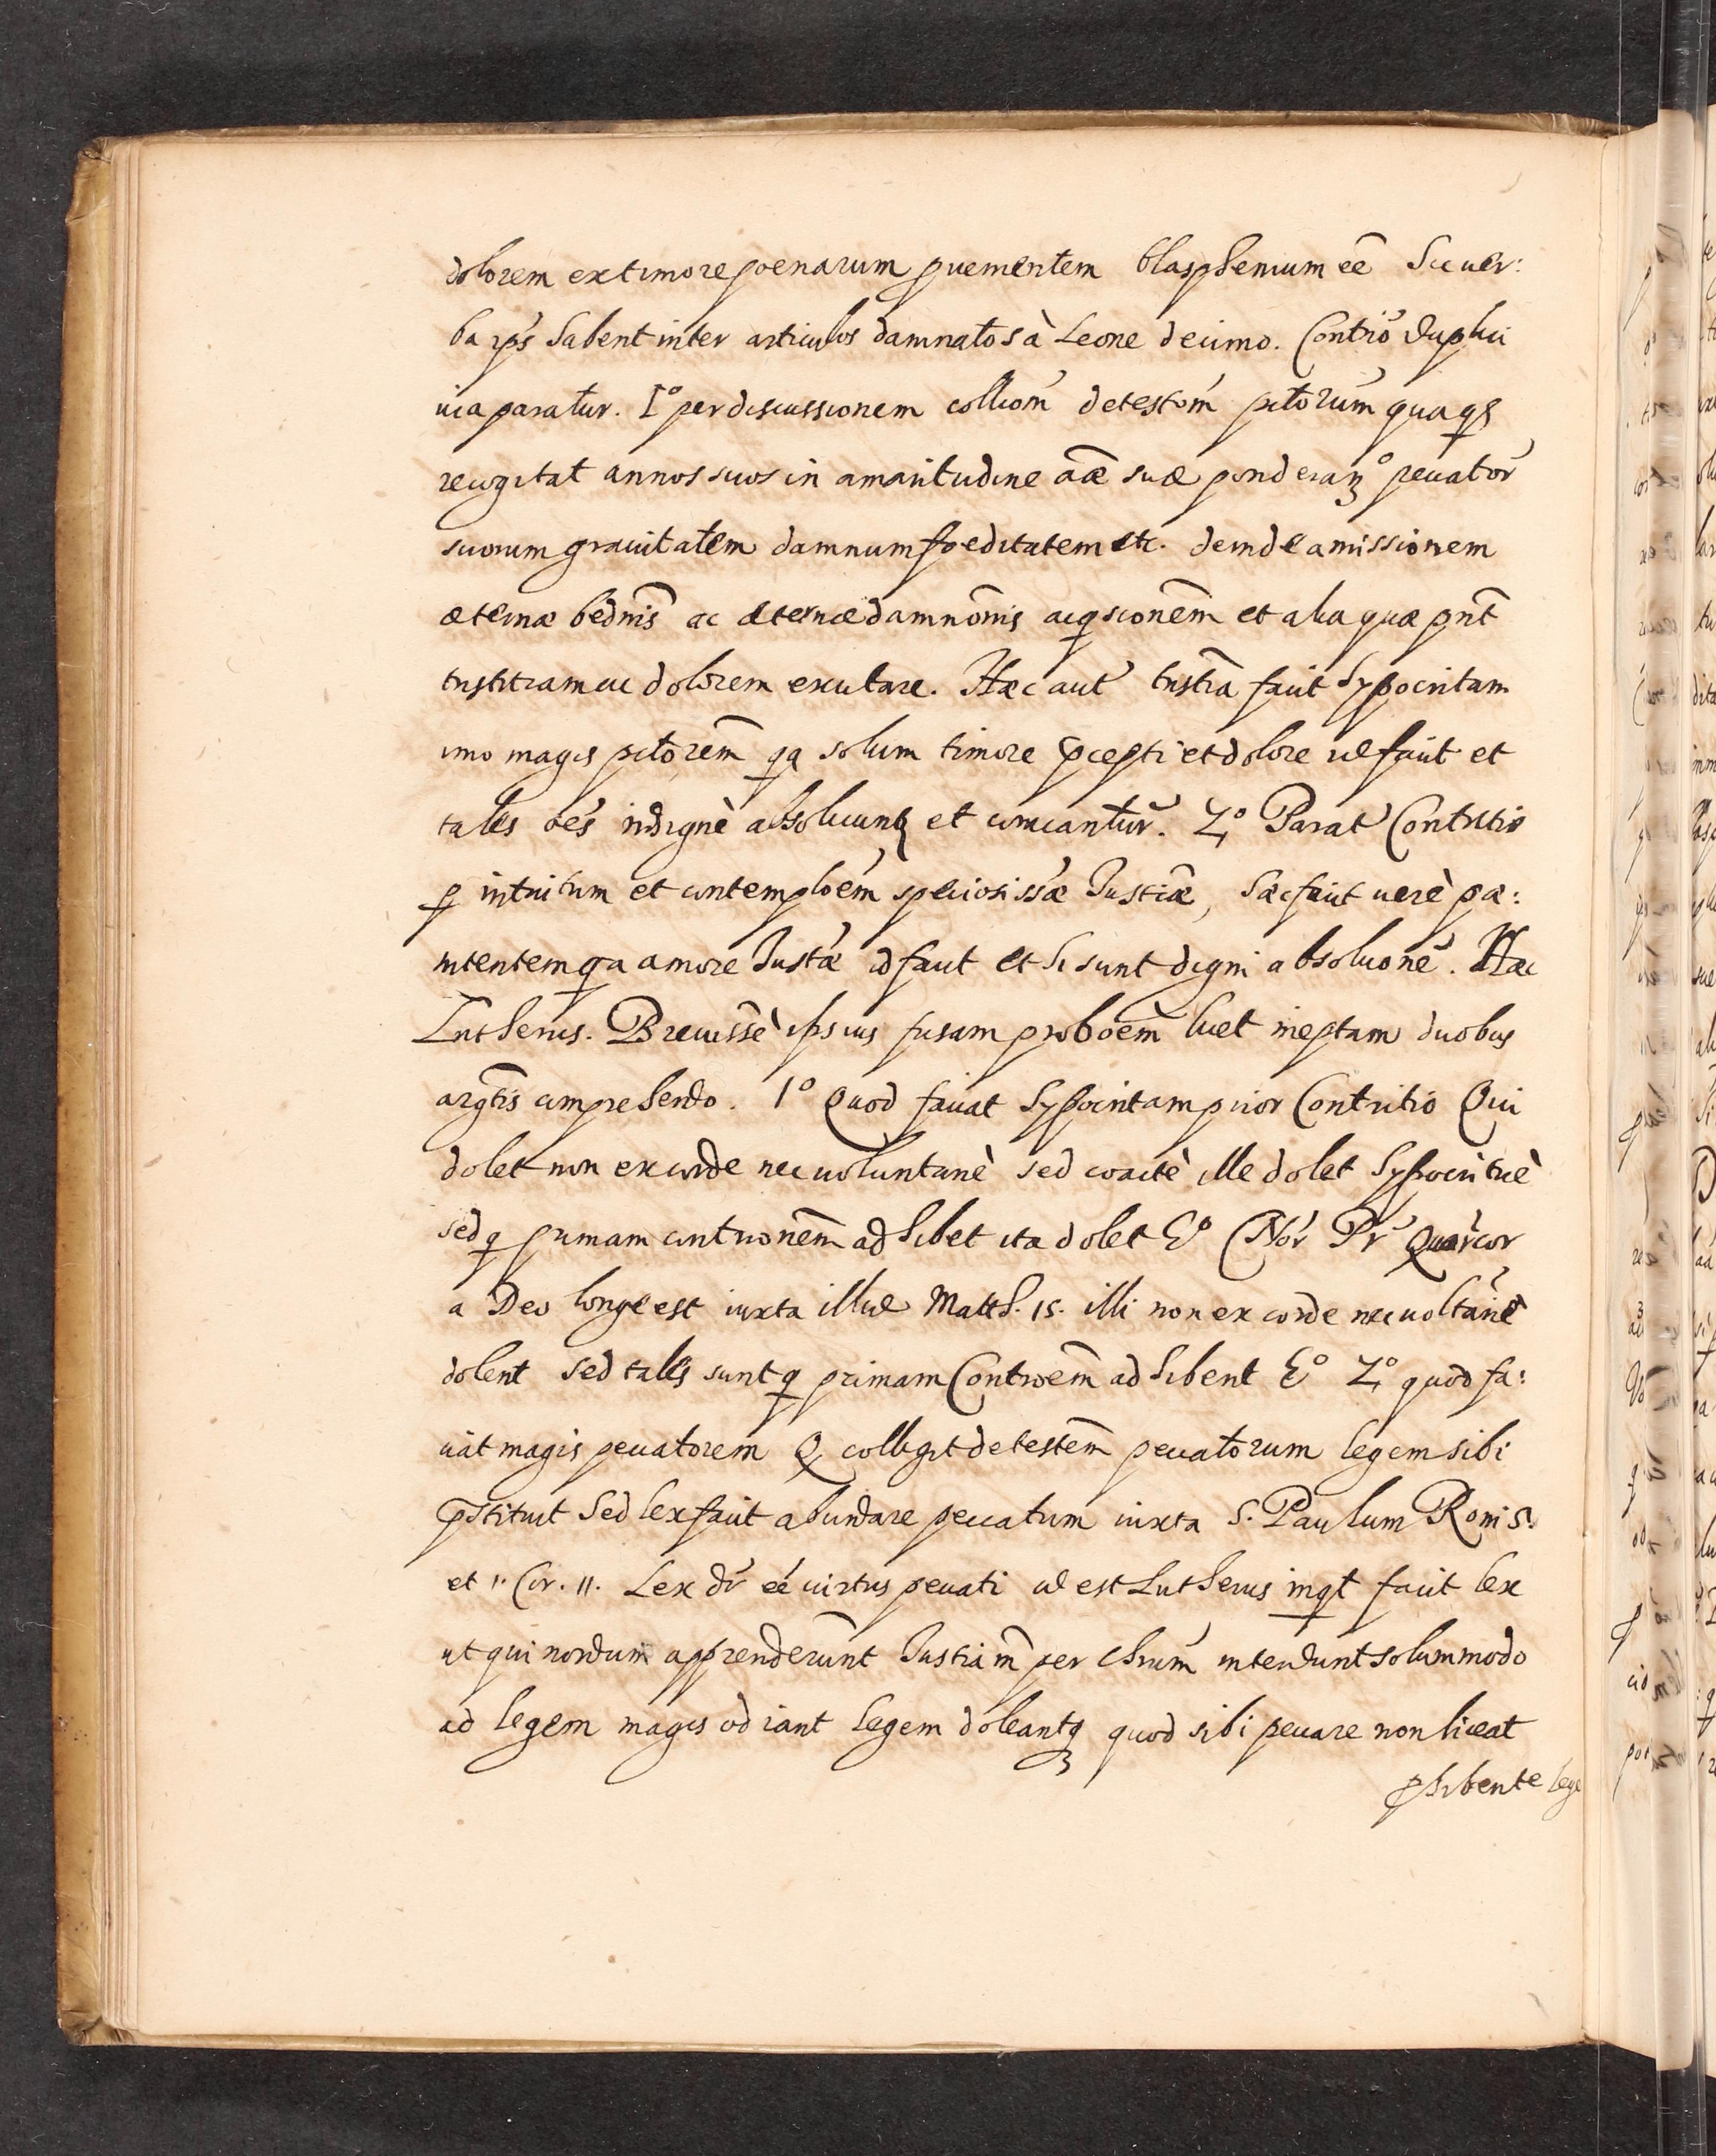 dolorem ex timore poenarum puementem blasphemum eē Sic uer:
ba ips̃ habent inter articulos damnatos à Leone decimo. Contriõ duplici
uia paratur. 1° per discussionem colliom̃ detestom̃ pctorum̃ qua qs
recogitat annos suos in amaritudine aæ̃ suæ ponderan° peccator̃
suorum grauitatem damnum foeditatem etc. deinde amissionem
æternæ bẽdnis̃ ac æternæ damnom̃is acqsionem̃ et alia quæ pnt̃
tristitiam ac dolorem excitare. Hæc aut̃ trist̃ia facit hypocritam
imo magis pctorem̃ qa solum timore præcepti et dolore id facit et
tales oẽs indignè absoluunt et comũcantur̃. 2° Parat̃ Contritio
p intuitum et contemploẽm speciosissæ̃ Justiæ̃, hæc facit uerè pæ:
nitentem qa amore Justæ̃ id facit et hi sunt digni absolucione̅. Hæc
Lutherus. Breuissẽ ipsius fusam proboẽm licet ineptam duobus
argtis̃ comprehendo. 1° Quod faciat hypocritam prior Contritio Qui
dolet non ex corde nec uoluntariè sed coactè ille dolet hypocriticè
sed q primam contrionem̃ adhibet ita dolet E° (Nor̃ Pr̃ Quar̃ cor
a Deo longe est iuxta illud Matth. 15. illi non ex corde nec uoltãriè
dolent sed tales sunt q primam Controem̃ adhibent E° 2° quod fa:
ciat magis peccatorem Q colligit detestem̃ peccatorum legem sibi
p̃stituit Sed lex facit abundare peccatum iuxta S. Paulum Rom 5.
et 1. Cor. 11. Lex dr̃ eẽ uirtus peccati id est Lutherus inqt facit lex
ut qui nondum apprenderunt̃ Justiam̃ per chrum̃ intendunt solummodo
ad legem magis odiant legem doleantq quod sibi peccare non liceat
phibente lege